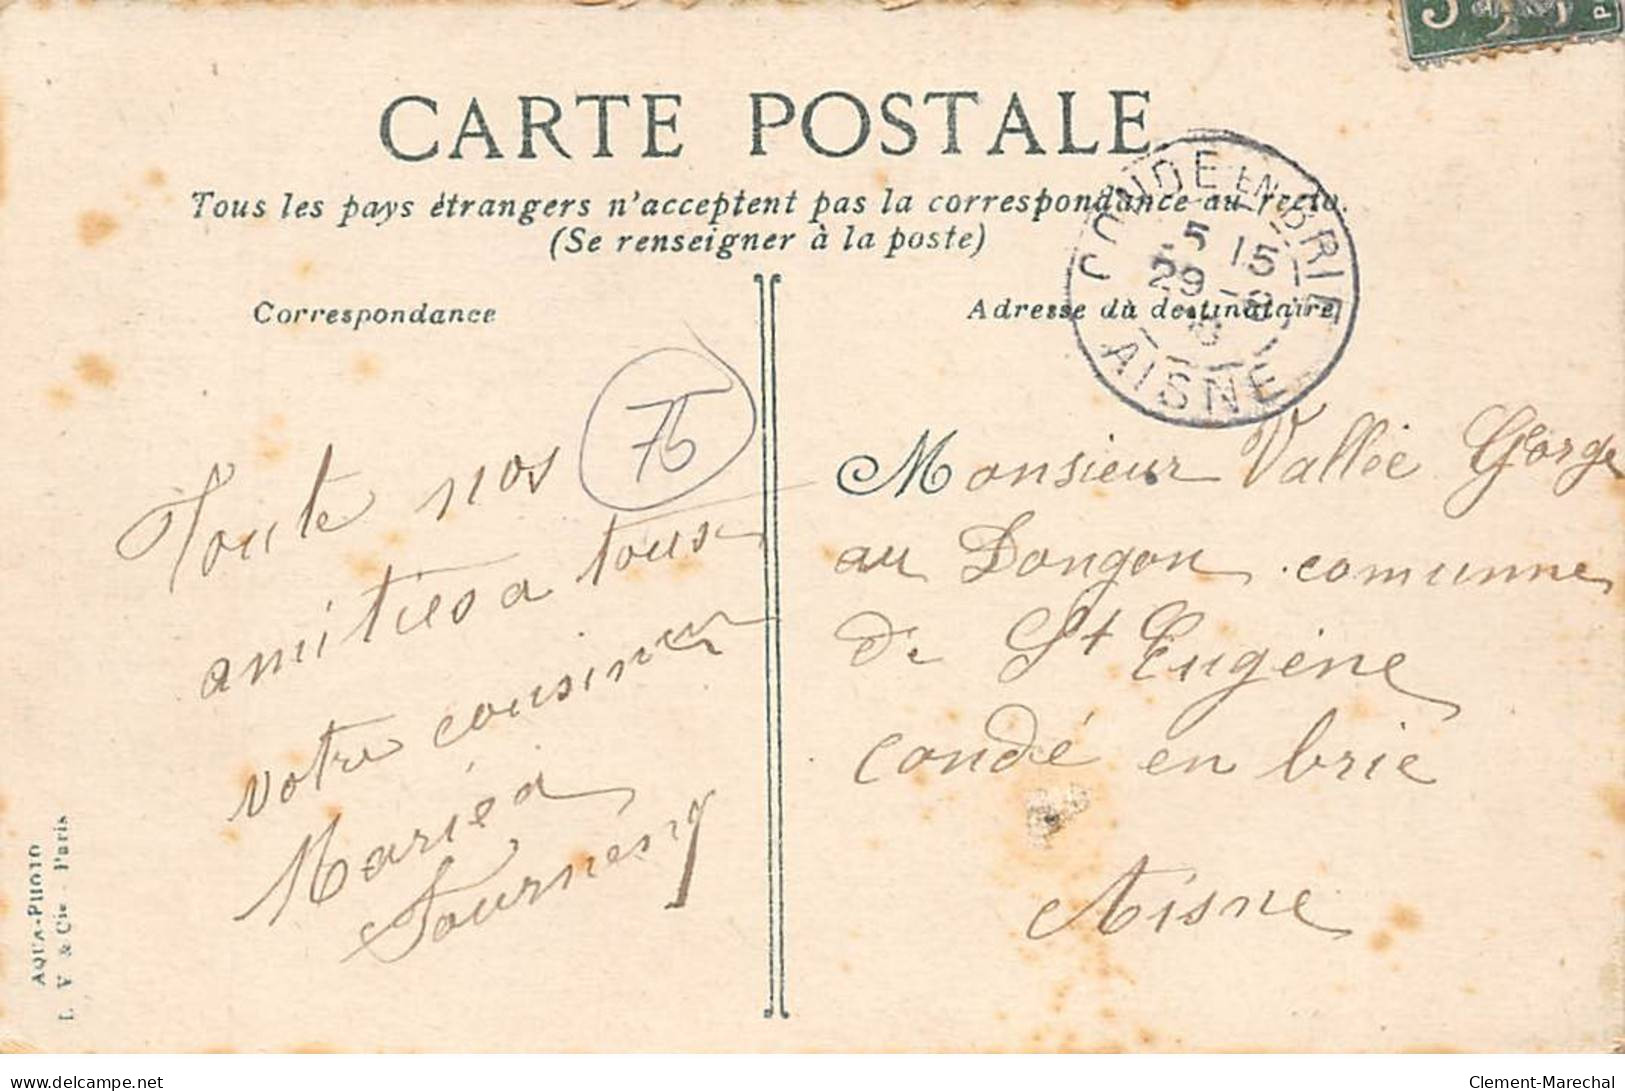 CARTE POSTALE
Tous les pays étrangers n'acceptent pas la correspondance au recto.
(Se renseigner à la poste)
Correspondance
Adresse du destinataire
CONDE EN BRIE
5 15
29 -8
AISNE
5
75
Toute nos
amitiés a tous
votre cousine
Maria
Fournery
Monsieur Vallée Gorge
au Dongon comunne
de St Eugéne
condé en brie
Aisne
AQUA-PHOTO
L. V & Cie - Paris
delcampe.net
Clement-Marechal